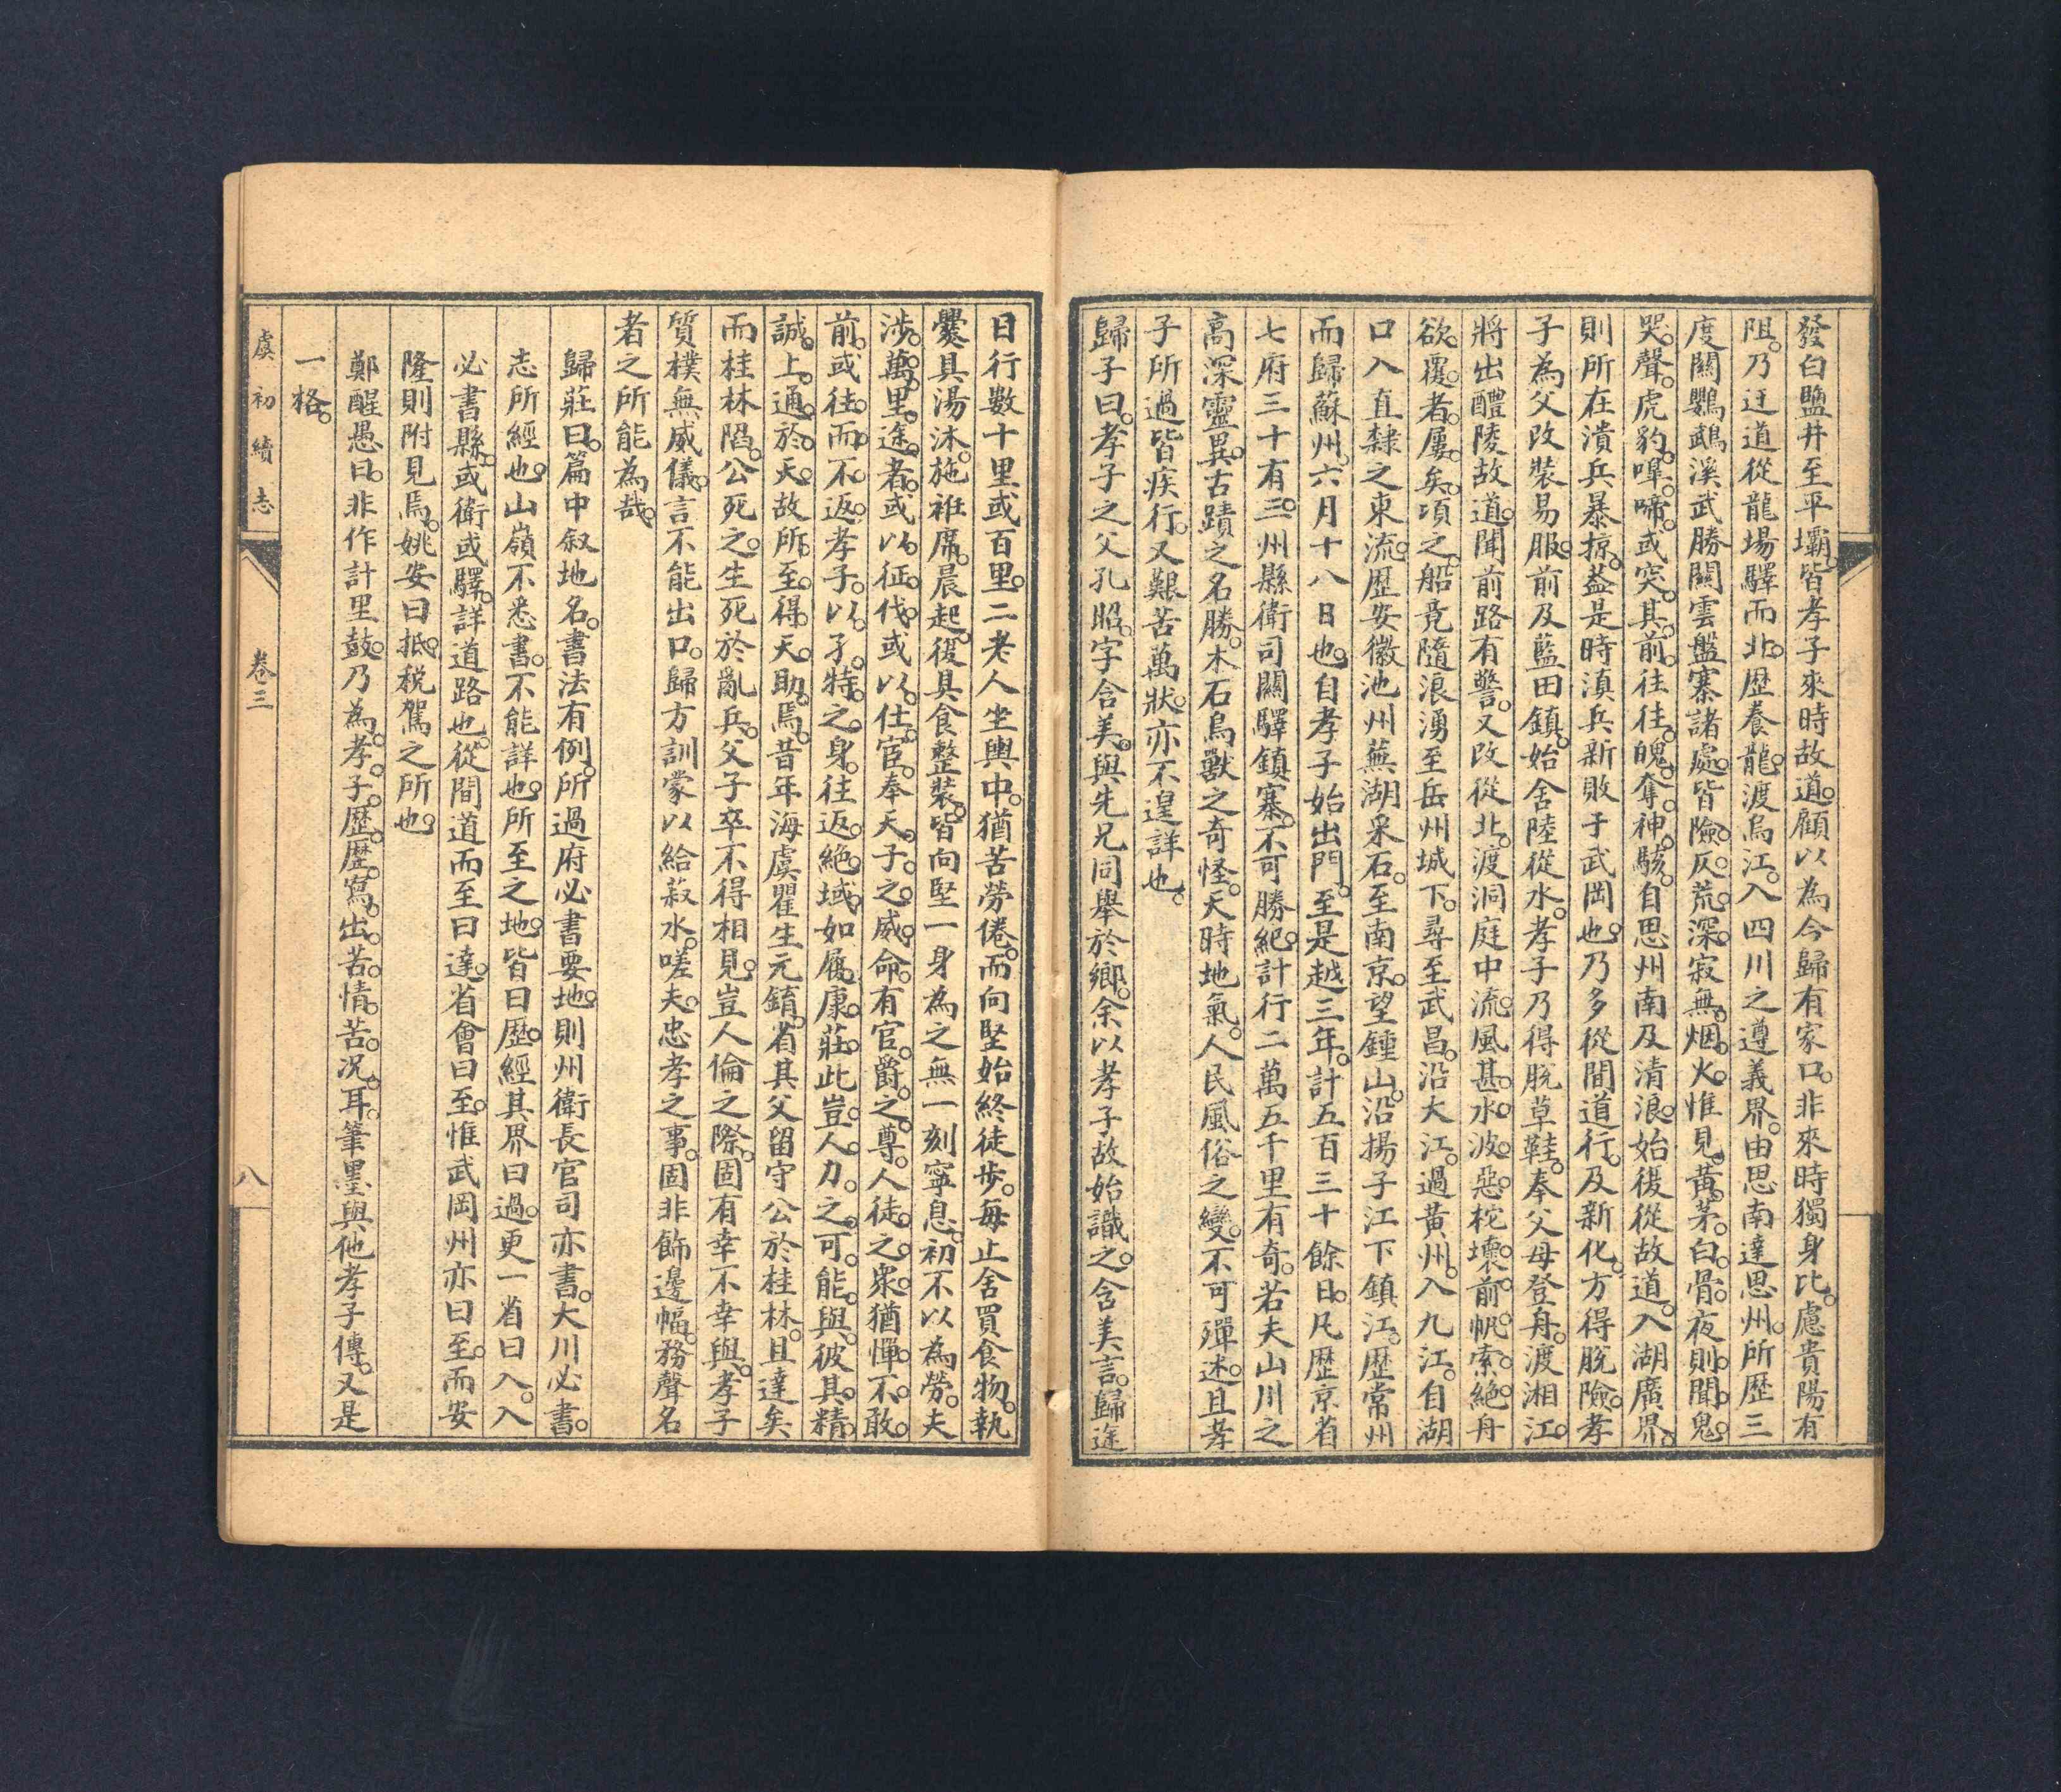 發白鹽井至平壩皆孝子來時故道顧以為今歸有家口非來時獨身比慮貴陽有
阻乃迂道從龍場驛而北歷養龍渡烏江入四川之遵義界由思南達思州所歷三
度關鸚鵡溪武勝關雲盤寨諸處皆險仄荒深寂無烟火惟見黃茅白骨夜則聞鬼
哭聲虎豹嘷啼或突其前往往魄奪神駭自思州南及清浪始復從故道入湖廣界
則所在潰兵暴掠蓋是時滇兵新敗于武岡也乃多從間道行及新化方得脫險孝
子為父改裝易服前及藍田鎮始舍陸從水孝子乃得脫草鞋奉父母登舟渡湘江
將出醴陵故道聞前路有警又改從北渡洞庭中流風甚水波惡柁壞前帆索絕舟
欲覆者屢矣項之船竟隨浪湧至岳州城下尋至武昌沿大江過黃州入九江自湖
口入直隸之東流歷安徽池州蕪湖采石至南京望鍾山沿揚子江下鎮江歷常州
而歸蘇州六月十八日也自孝子始出門至是越三年計五百三十餘日凡歷京省
七府三十有三州縣衛司關驛鎮寨不可勝紀計行二萬五千里有奇若夫山川之
高深靈異古蹟之名勝木石鳥獸之奇怪天時地氣人民風俗之變不可殫述且孝
子所過皆疾行又艱苦萬狀亦不遑詳也
歸子曰孝子之父孔昭字含美與先兄同舉於鄉余以孝子故始識之含美言歸途
日行數十里或百里二老人坐輿中猶苦勞倦而向堅始終徒步每止舍買食物執
爨具湯沐施袵席晨起復具食整裝皆向堅一身為之無一刻寧息初不以為勞夫
涉萬里途者或以征伐或以仕宦奉天子之威命有官爵之尊人徒之眾猶憚不敢
前或往而不返孝子以孑特之身往返絕域如履康莊此豈人力之可能與彼其精
誠上通於天故所至得天助焉昔年海虞瞿生元錥省其父留守公於桂林且達矣
而桂林陷公死之生死於亂兵父子卒不得相見豈人倫之際固有幸不幸與孝子
質樸無威儀言不能出口歸方訓蒙以給菽水嗟夫忠孝之事固非飾邊幅務聲名
者之所能為哉
歸莊曰篇中叙地名書法有例所過府必書要地則州衛長官司亦書大川必書
志所經也山嶺不悉書不能詳也所至之地皆曰歷經其界曰過更一省曰入入
必書縣或衛或驛詳道路也從間道而至曰達省會曰至惟武岡州亦曰至而安
隆則附見焉姚安曰抵稅駕之所也
鄭醒愚曰非作計里鼓乃為孝子歷歷寫出苦情苦况耳筆墨與他孝子傳又是
一格
虞初續志
卷三
八